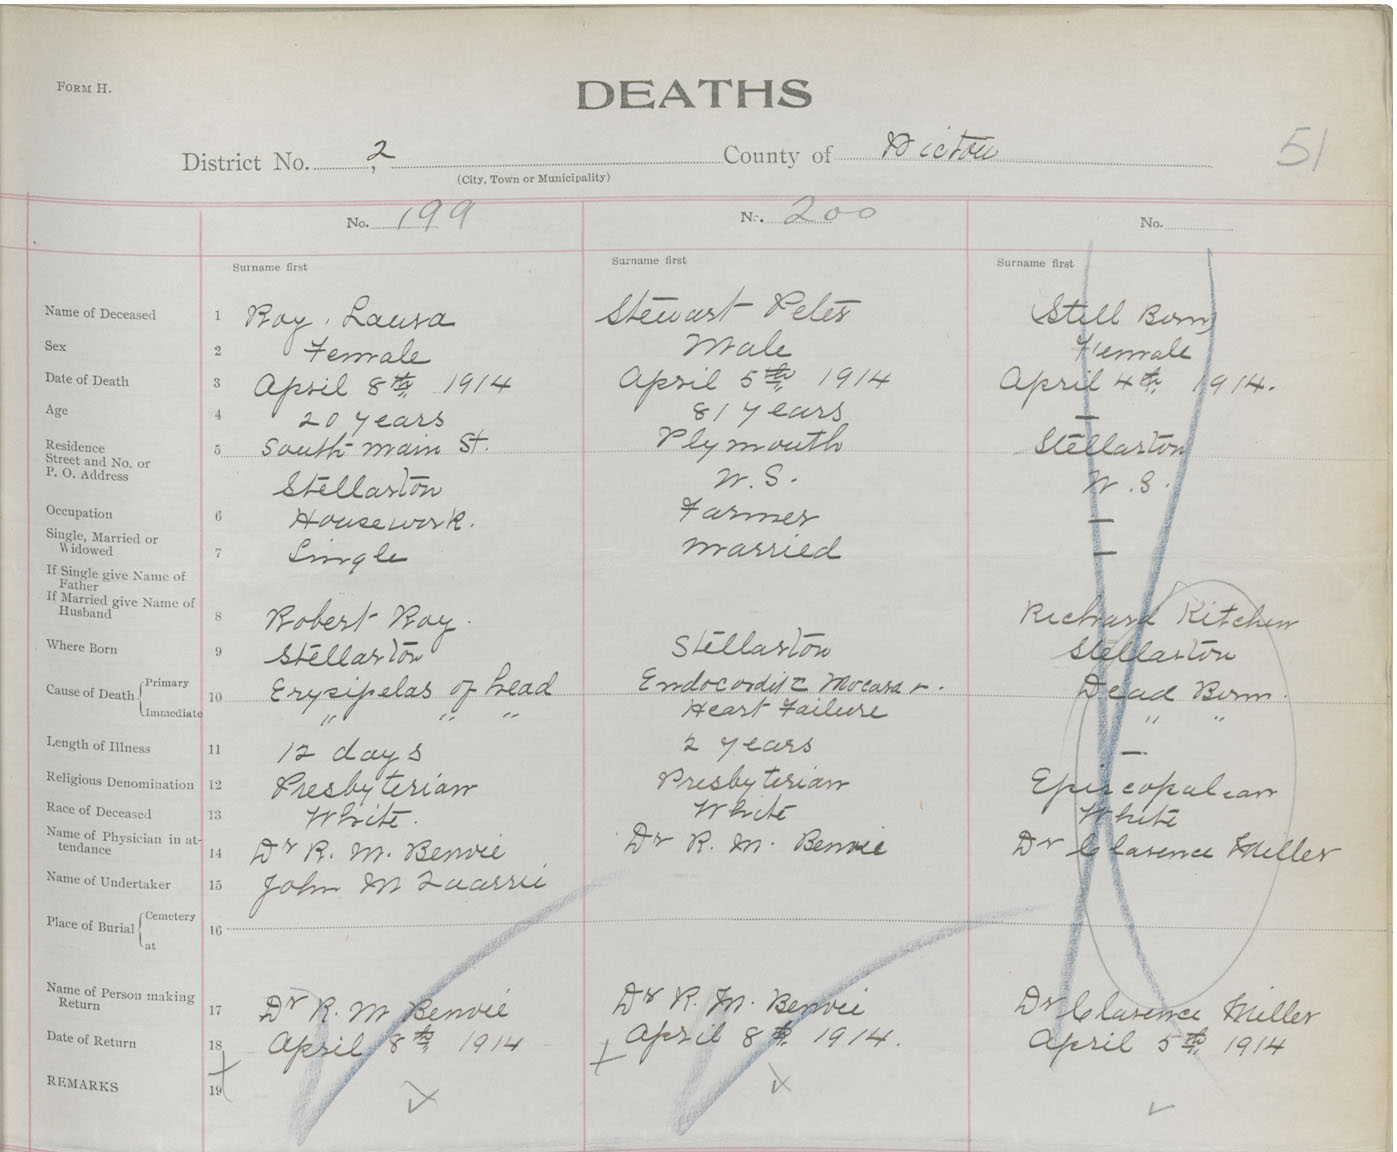 FORM H.
DEATHS
51
District No. 2 County of Pictou
(City, Town or Municipality)
No. 199 No. 200 No.
Surname first Surname first Surname first
Name of Deceased 1 Roy, Laura Stewart Peter Still Born
Sex 2 Female Male Female
Date of Death 3 April 8th, 1914 April 5th, 1914 April 4th, 1914.
Age 4 20 years 81 years —
Residence
Street and No. or
P. O. Address 5 South main St. Plymouth Stellarton
Stellarton N.S. N.S.
Occupation 6 Housework. Farmer —
Single, Married or
Widowed 7 Single married —
If Single give Name of
Father
If Married give Name of
Husband 8 Robert Roy. Richard Kitchen
Where Born 9 Stellarton Stellarton Stellarton
Cause of Death Primary 10 Erysipelas of head Dead Born.
Immediate " " " Heart Failure " "
Length of Illness 11 12 days 2 years —
Religious Denomination 12 Presbyterian Presbyterian Episcopalian
Race of Deceased 13 White. White White
Name of Physician in at-
tendance 14 Dr R. M. Benvie Dr R. M. Benvie Dr Clarence Miller
Name of Undertaker 15 John
Place of Burial Cemetery 16
at
Name of Person making
Return 17 Dr R. M Benvie Dr R. M. Benvie Dr Clarence Miller
Date of Return 18 April 8th, 1914 April 8th, 1914. April 5th, 1914
REMARKS 19